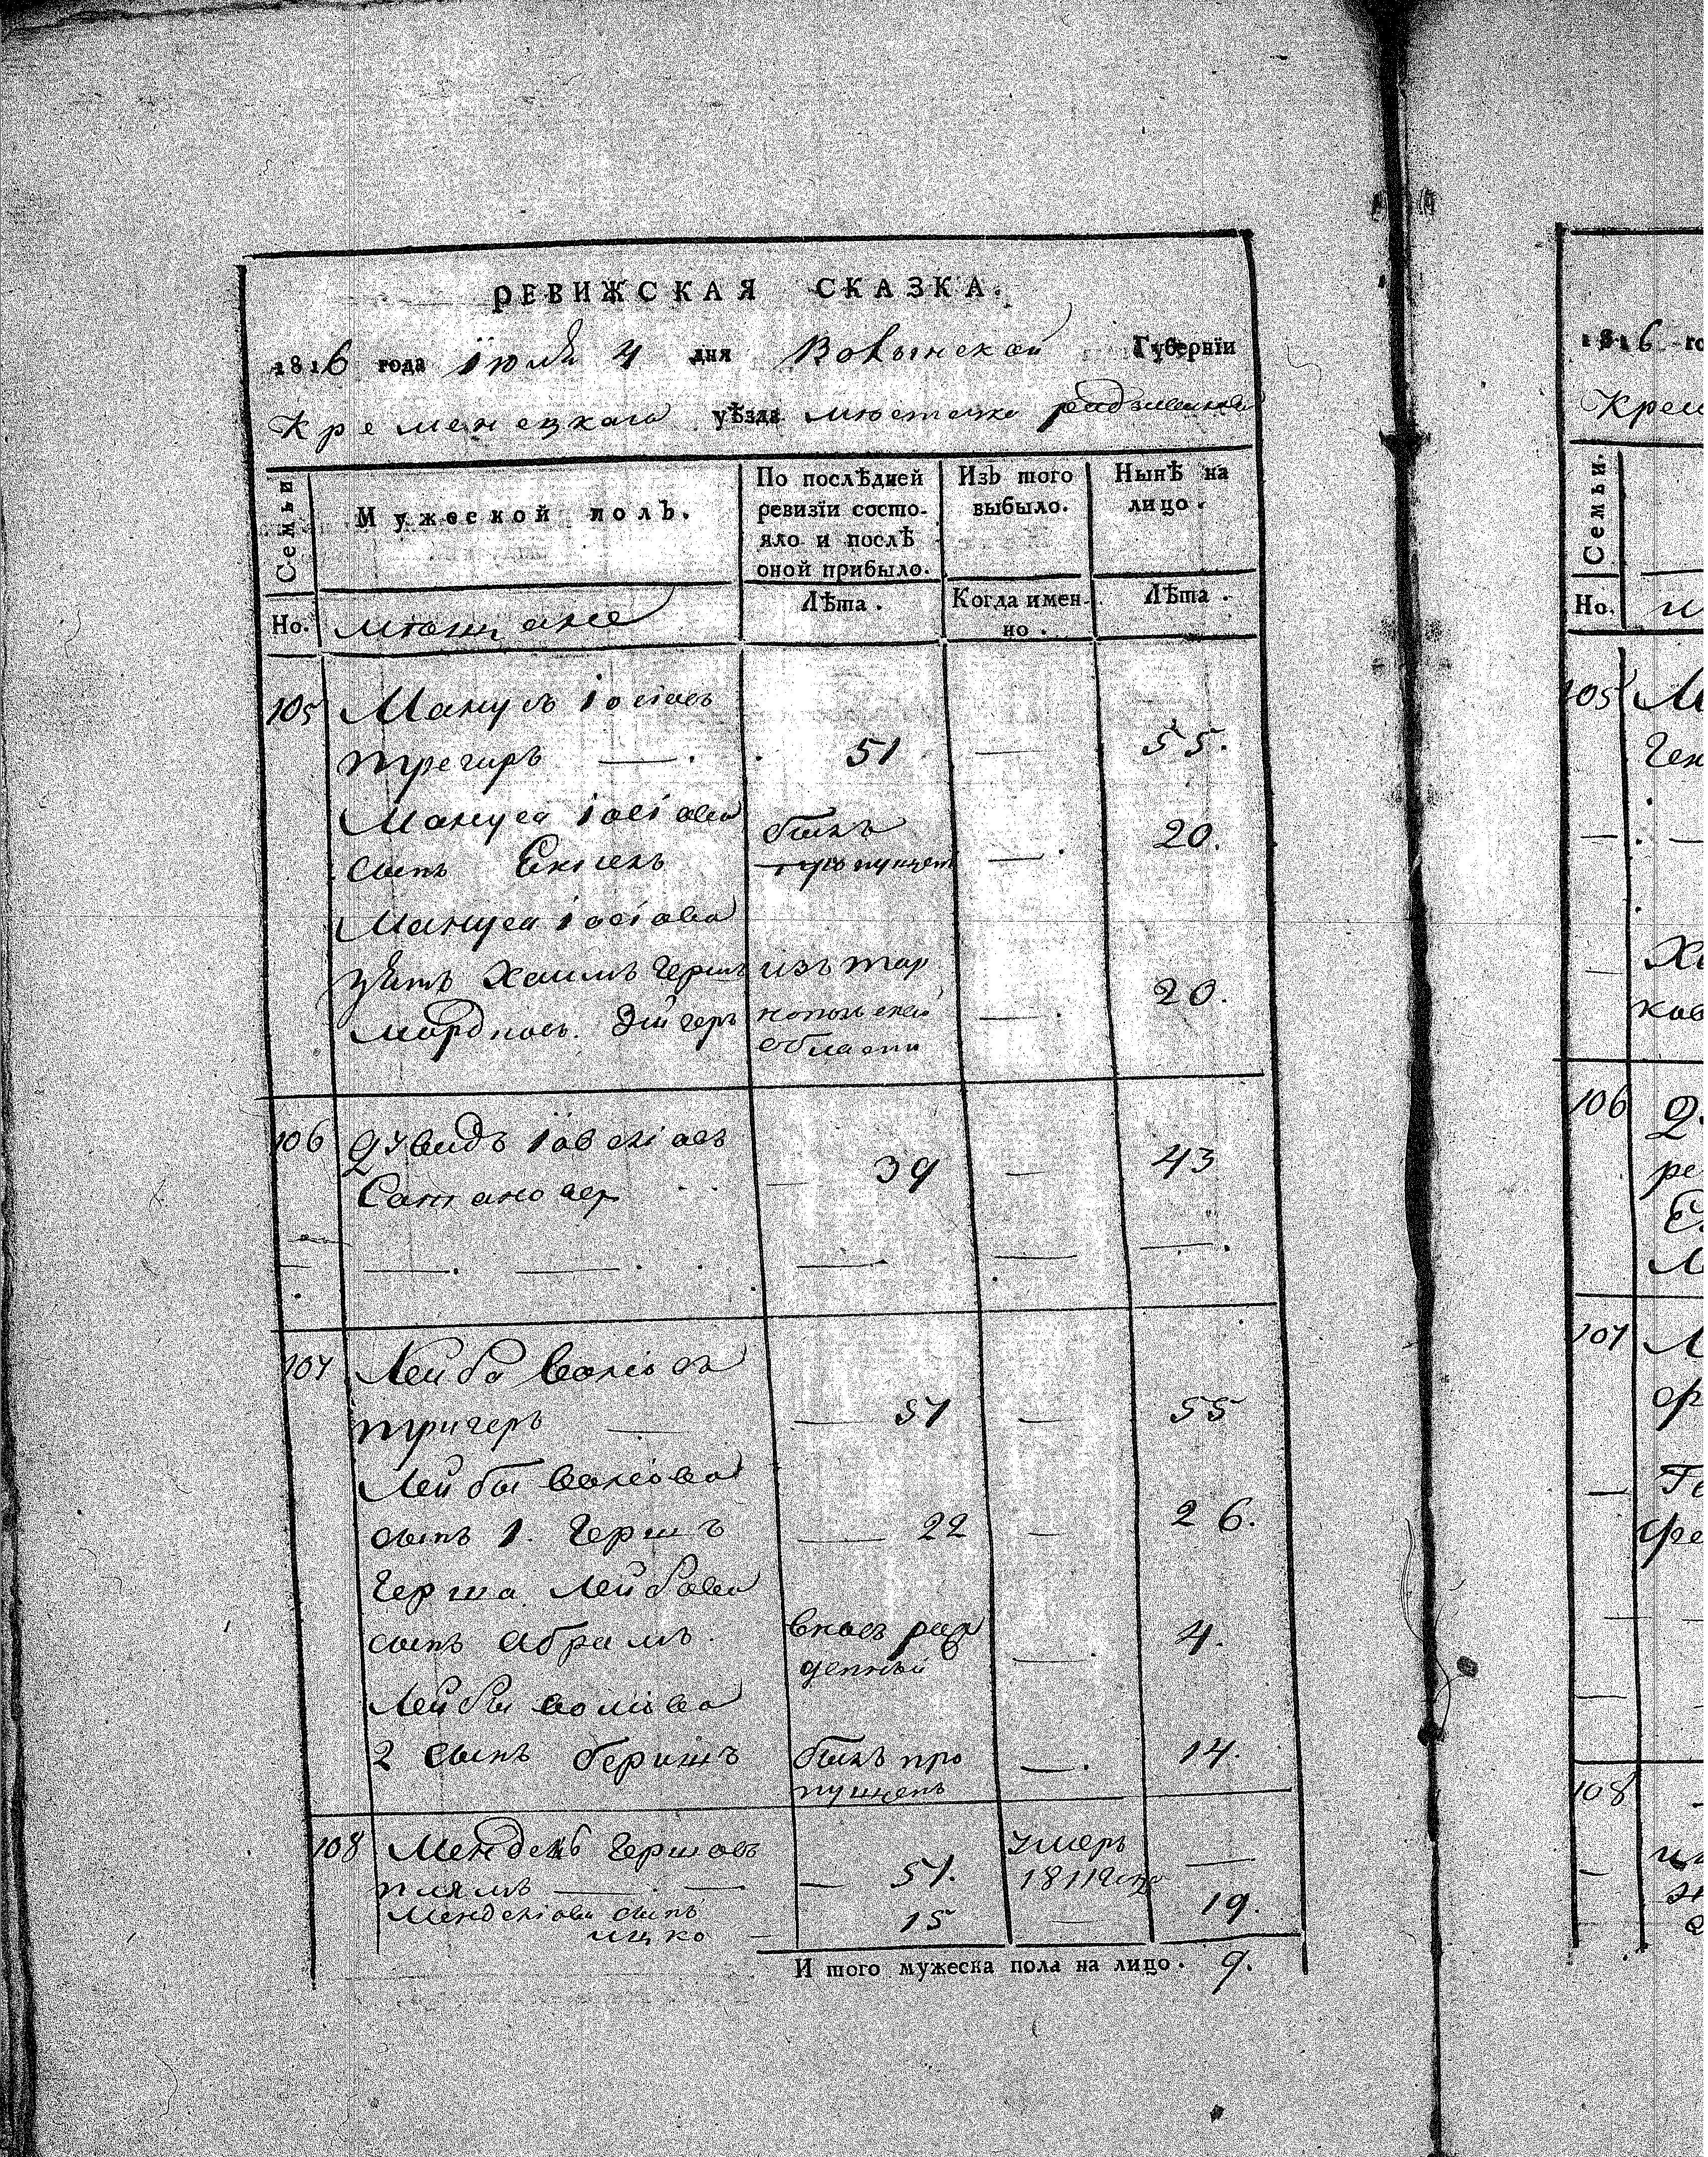 РЕВИЖСКАЯ СКАЗКА.
1816 года Iюля 4 дня Волынской Губернїи
Кременецкаго уѣзда мѣстечка радзивилова
Семьи
Мужеской полЪ.
По послѣдней
ревизїи состо-
яло и послѣ
оной прибыло.
ИзЪ того
выбыло.
Нынѣ на
лицо.
Но.
мѣщане
Лѣта.
Когда имен-
но.
Лѣта.
105 Манусъ Iосiовъ
трегеръ — 51 — 55.
Мануса Iосiова
сынъ Екель былъ пропущен — 20.
Мануса Iосiова
зять Хаимъ Герш из тар
мордков. Эйгеръ нопольской — 20.
области
106 Давидъ Iовелiовъ
Сатановер — 39 — 43
107 Лейба Волiовъ
тригеръ — 57 — 55
Лейбы Волiова
сынъ 1. Гершъ — 22 — 26.
Герша Лейбова
сынъ Абрамъ. вновъ рож — 4.
денный
Лейбы волiова
2 сынъ беришъ былъ про — 14.
пущенъ
108 Мендель Гершовъ умеръ
плямъ — 57. 1811 году —
Менделiова сынъ
ицко — 15 — 19.
И того мужеска пола на лицо. 9.
1816 го
Крем
Семьи.
Но.
105
Ген
Ха
ков
106
ре
107
Ге
108